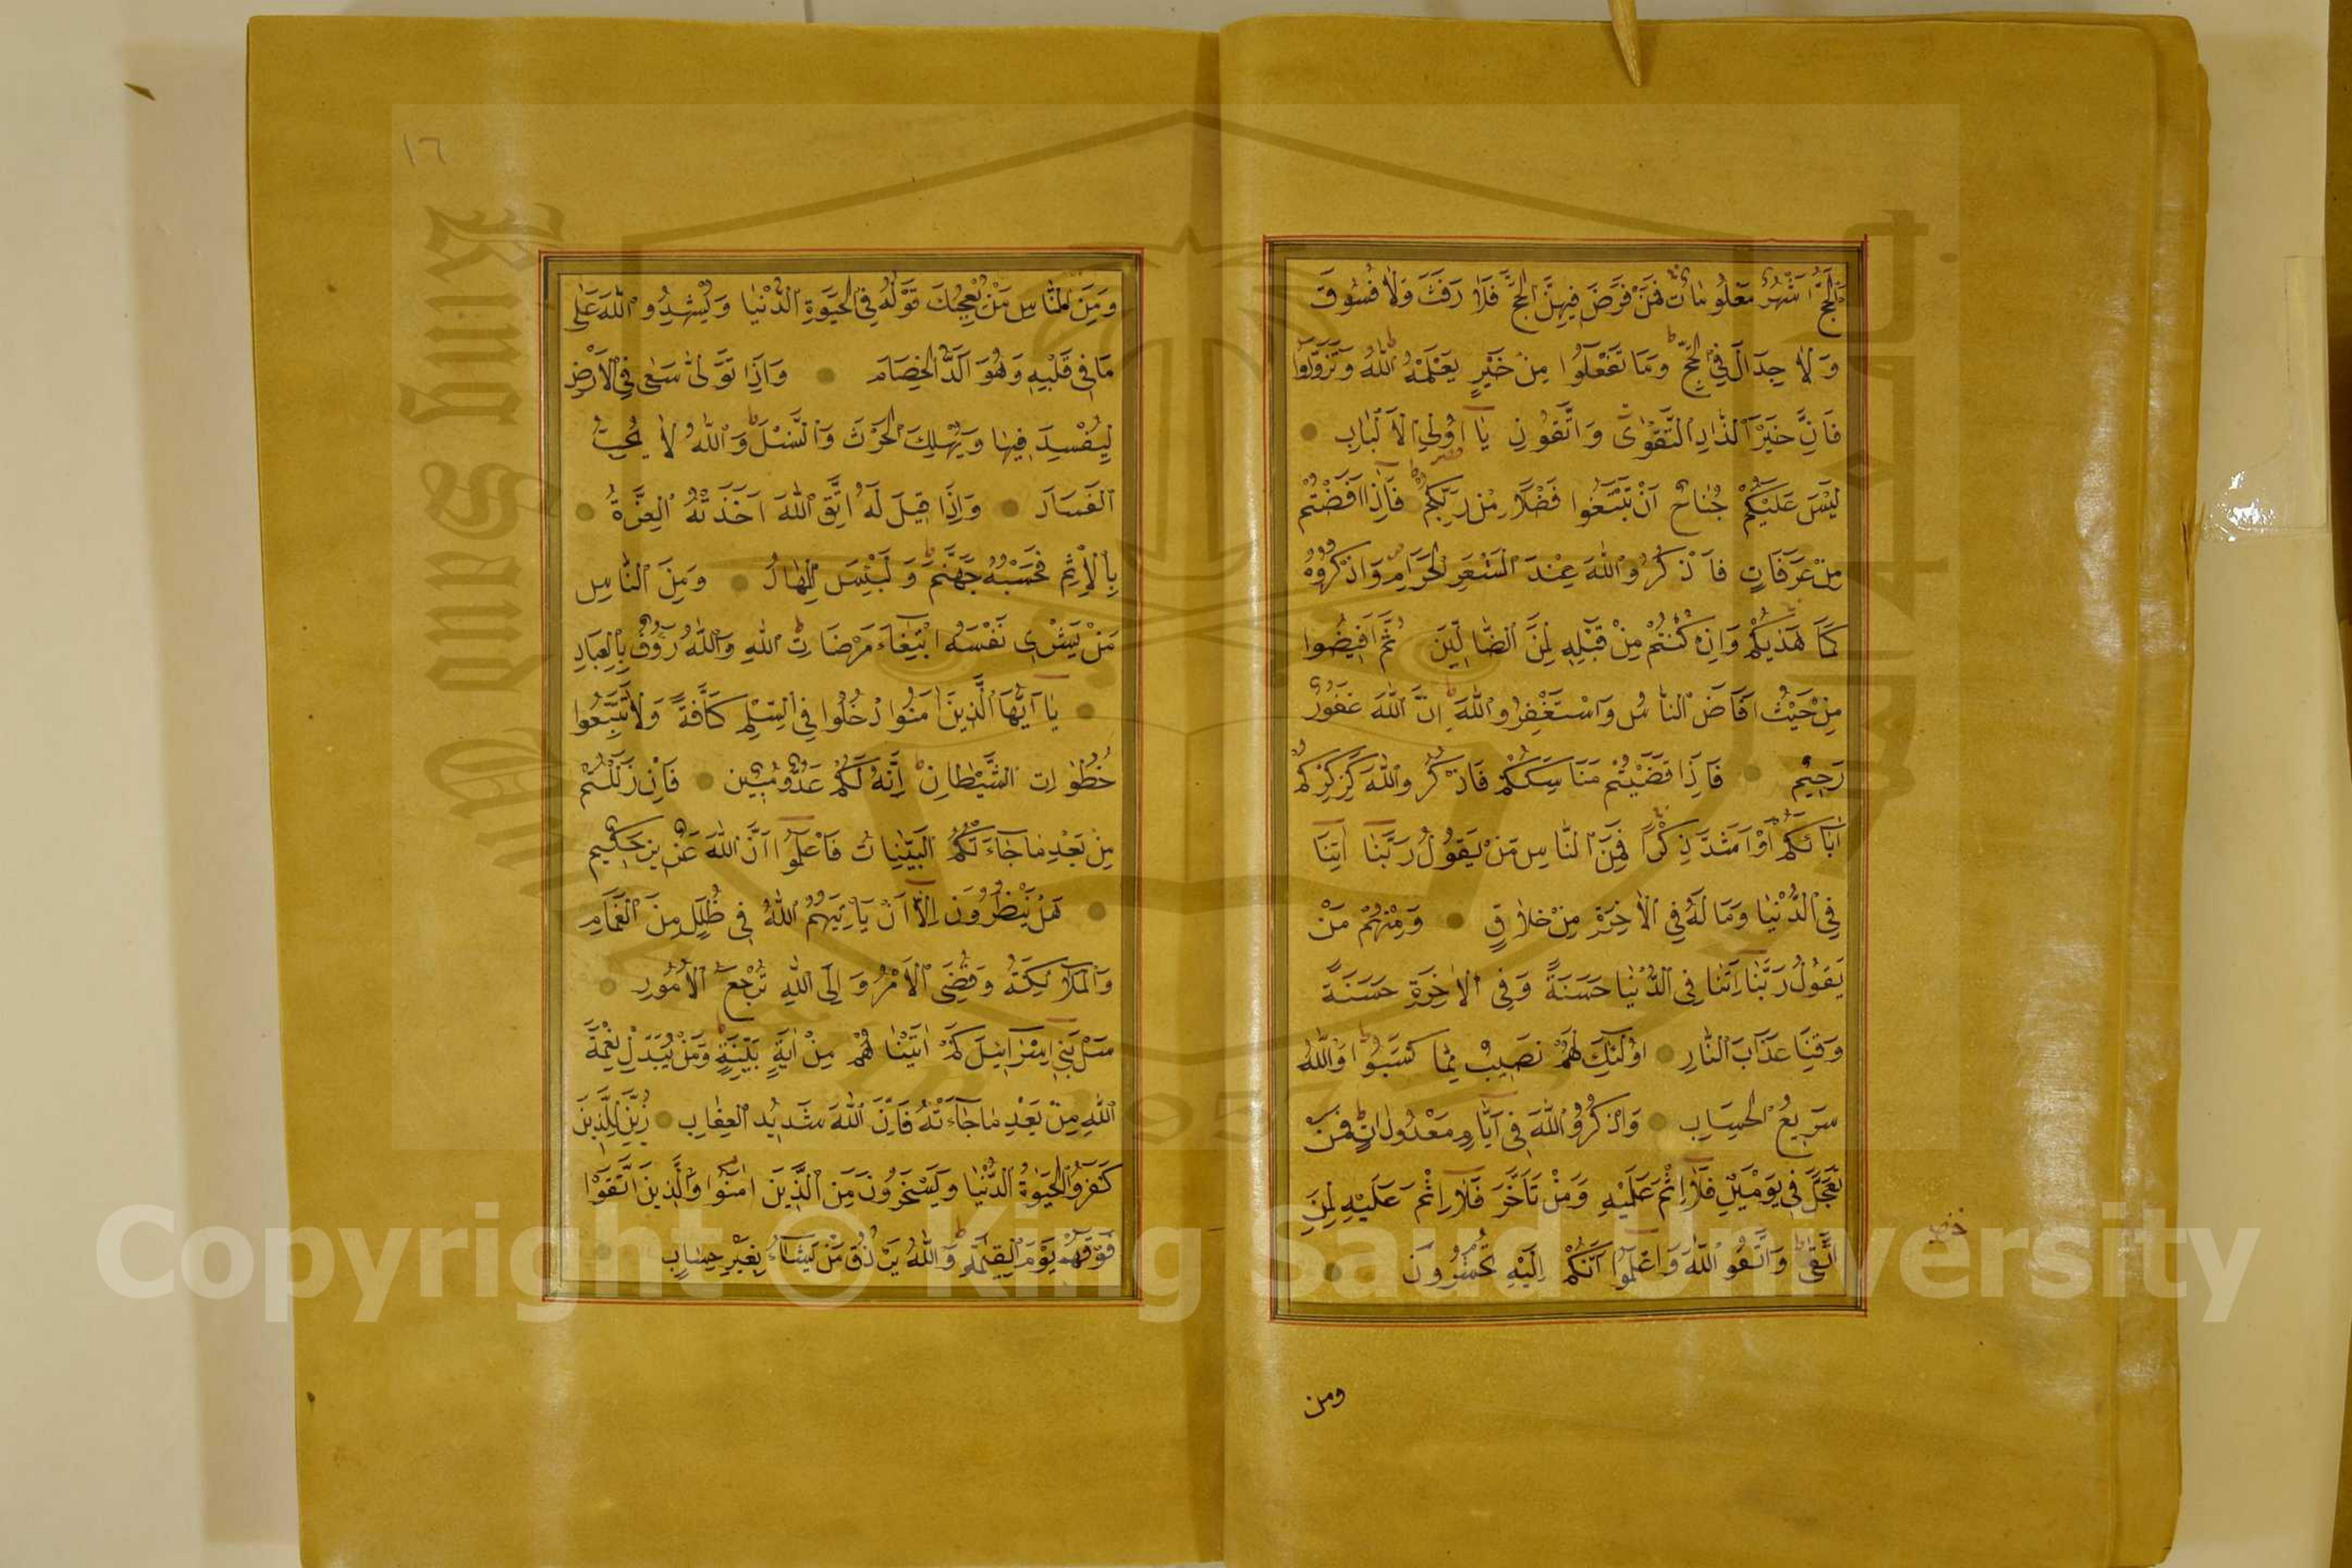 اَلْحَجُّ اَشْهُرٌ مَعْلُومَاتٌ فَمَنْ فَرَضَ فِيهِنَّ الْحَجَّ فَلَا رَفَثَ وَلَا فُسُوقَ
وَلَا جِدَالَ فِي الْحَجِّ وَمَا تَفْعَلُوا مِنْ خَيْرٍ يَعْلَمْهُ اللّٰهُ وَتَزَوَّدُوا
فَاِنَّ خَيْرَ الزَّادِ التَّقْوٰى وَاتَّقُونِ يَا اُولِي الْاَلْبَابِ
لَيْسَ عَلَيْكُمْ جُنَاحٌ اَنْ تَبْتَغُوا فَضْلًا مِنْ رَبِّكُمْ فَاِذَا اَفَضْتُمْ
مِنْ عَرَفَاتٍ فَاذْكُرُوا اللّٰهَ عِنْدَ الْمَشْعَرِ الْحَرَامِ وَاذْكُرُوهُ
كَمَا هَدٰيكُمْ وَاِنْ كُنْتُمْ مِنْ قَبْلِهِ لَمِنَ الضَّالِّينَ ثُمَّ اَفِيضُوا
مِنْ حَيْثُ اَفَاضَ النَّاسُ وَاسْتَغْفِرُوا اللّٰهَ اِنَّ اللّٰهَ غَفُورٌ
رَحِيمٌ فَاِذَا قَضَيْتُمْ مَنَاسِكَكُمْ فَاذْكُرُوا اللّٰهَ كَذِكْرِكُمْ
اٰبَاءَكُمْ اَوْ اَشَدَّ ذِكْرًا فَمِنَ النَّاسِ مَنْ يَقُولُ رَبَّنَا اٰتِنَا
فِي الدُّنْيَا وَمَا لَهُ فِي الْاٰخِرَةِ مِنْ خَلَاقٍ وَمِنْهُمْ مَنْ
يَقُولُ رَبَّنَا اٰتِنَا فِي الدُّنْيَا حَسَنَةً وَفِي الْاٰخِرَةِ حَسَنَةً
وَقِنَا عَذَابَ النَّارِ اُولٰئِكَ لَهُمْ نَصِيبٌ مِمَّا كَسَبُوا وَاللّٰهُ
سَرِيعُ الْحِسَابِ وَاذْكُرُوا اللّٰهَ فِي اَيَّامٍ مَعْدُودَاتٍ فَمَنْ
تَعَجَّلَ فِي يَوْمَيْنِ فَلَا اِثْمَ عَلَيْهِ وَمَنْ تَاَخَّرَ فَلَا اِثْمَ عَلَيْهِ لِمَنِ
اتَّقٰى وَاتَّقُوا اللّٰهَ وَاعْلَمُوا اَنَّكُمْ اِلَيْهِ تُحْشَرُونَ
ومن
١٦
وَمِنَ النَّاسِ مَنْ يُعْجِبُكَ قَوْلُهُ فِي الْحَيٰوةِ الدُّنْيَا وَيُشْهِدُ اللّٰهَ عَلٰى
مَا فِي قَلْبِهِ وَهُوَ اَلَدُّ الْخِصَامِ وَاِذَا تَوَلّٰى سَعٰى فِي الْاَرْضِ
لِيُفْسِدَ فِيهَا وَيُهْلِكَ الْحَرْثَ وَالنَّسْلَ وَاللّٰهُ لَا يُحِبُّ
الْفَسَادَ وَاِذَا قِيلَ لَهُ اتَّقِ اللّٰهَ اَخَذَتْهُ الْعِزَّةُ
بِالْاِثْمِ فَحَسْبُهُ جَهَنَّمُ وَلَبِئْسَ الْمِهَادُ وَمِنَ النَّاسِ
مَنْ يَشْرِي نَفْسَهُ ابْتِغَاءَ مَرْضَاتِ اللّٰهِ وَاللّٰهُ رَؤُفٌ بِالْعِبَادِ
يَا اَيُّهَا الَّذِينَ اٰمَنُوا ادْخُلُوا فِي السِّلْمِ كَافَّةً وَلَا تَتَّبِعُوا
خُطُوَاتِ الشَّيْطَانِ اِنَّهُ لَكُمْ عَدُوٌّ مُبِينٌ فَاِنْ زَلَلْتُمْ
مِنْ بَعْدِ مَا جَاءَتْكُمُ الْبَيِّنَاتُ فَاعْلَمُوا اَنَّ اللّٰهَ عَزِيزٌ حَكِيمٌ
هَلْ يَنْظُرُونَ اِلَّا اَنْ يَاْتِيَهُمُ اللّٰهُ فِي ظُلَلٍ مِنَ الْغَمَامِ
وَالْمَلَائِكَةُ وَقُضِيَ الْاَمْرُ وَاِلَى اللّٰهِ تُرْجَعُ الْاُمُورُ
سَلْ بَنِي اِسْرَائِيلَ كَمْ اٰتَيْنَاهُمْ مِنْ اٰيَةٍ بَيِّنَةٍ وَمَنْ يُبَدِّلْ نِعْمَةَ
اللّٰهِ مِنْ بَعْدِ مَا جَاءَتْهُ فَاِنَّ اللّٰهَ شَدِيدُ الْعِقَابِ زُيِّنَ لِلَّذِينَ
كَفَرُوا الْحَيٰوةُ الدُّنْيَا وَيَسْخَرُونَ مِنَ الَّذِينَ اٰمَنُوا وَالَّذِينَ اتَّقَوْا
فَوْقَهُمْ يَوْمَ الْقِيٰمَةِ وَاللّٰهُ يَرْزُقُ مَنْ يَشَاءُ بِغَيْرِ حِسَابٍ
Copyright © King Saud University
King Saud University
1957